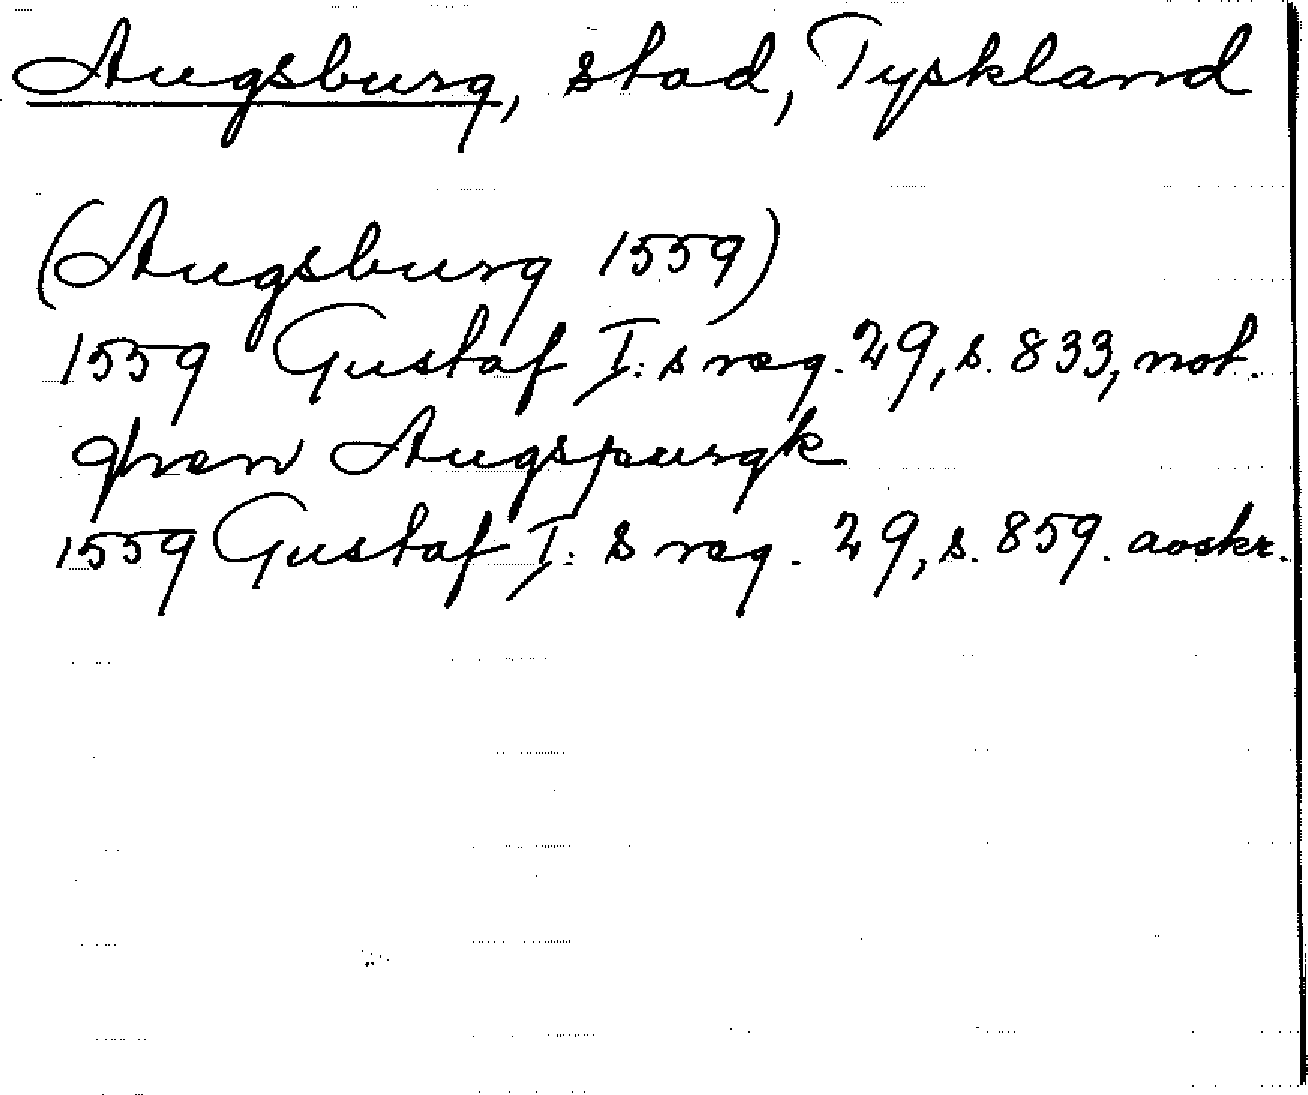 Augsburg, stad, Tyskland
(Augsburg 1559)
1559 Gustaf I:s reg. 29, s. 833, not.
Augspurgk
1559 Gustaf I:s reg. 29, s. 859. avskr.